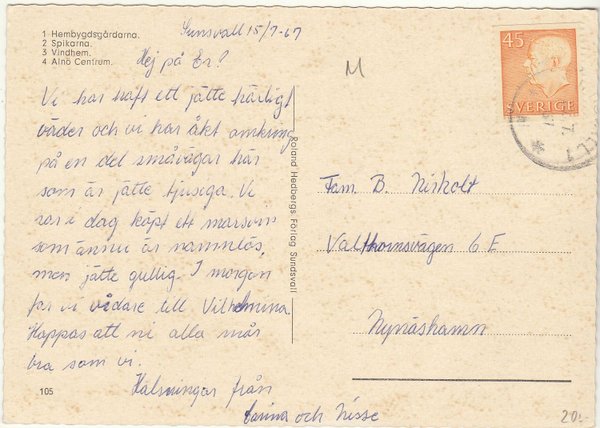 1 Hembygdsgårdarna.
2 Spikarna.
3 Vindhem.
4 Alnö Centrum.
Sunsvall 15/7-67
Hej på Er?
Vi har haft ett jätte härligt
väder och vi har åkt omkring
på en del småvägar här
som är jätte tjusiga. Vi
har i dag köpt ett marsvin
som ännu är namnlös,
men jätte gullig. I morgon
far vi vidare till Vilhelmina.
Hoppas att ni alla mår
bra som vi.
Hälsningar från
Carina och Nisse
105
Roland Hedbergs Förlag Sundsvall
M
45
SVERIGE
Fam. B.
Valthornsvägen 6 E
Nynäshamn
20:-